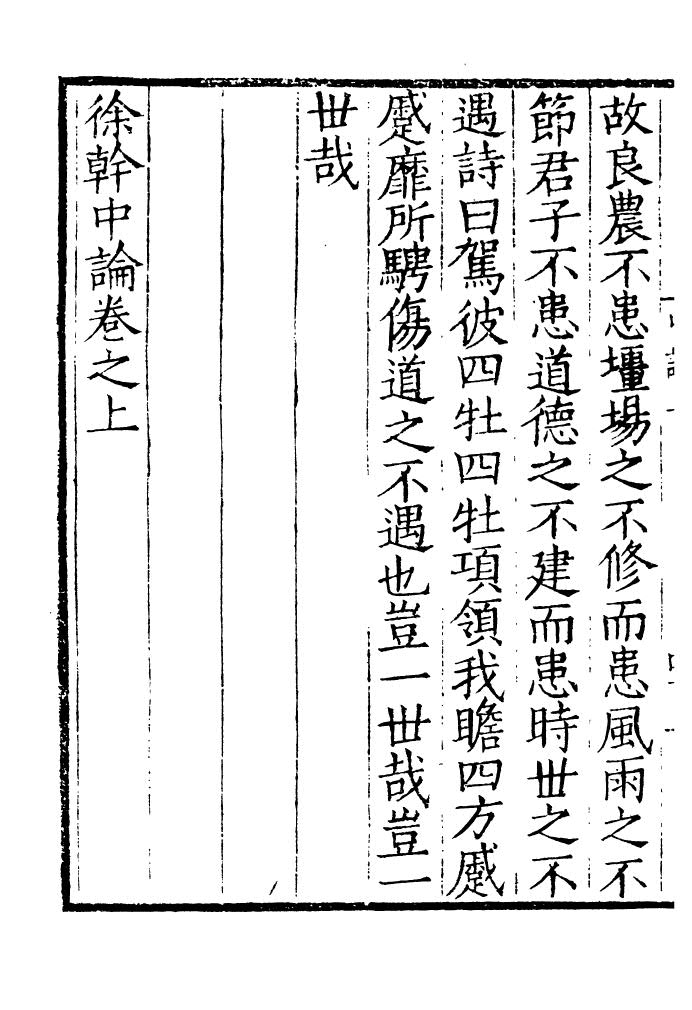 故良農不患壃埸之不修而患風雨之不
節君子不患道德之不建而患時丗之不
遇詩曰駕彼四牡四牡項領我瞻四方蹙
蹙靡所騁傷道之不遇也豈一丗哉豈一
丗哉
徐幹中論卷之上